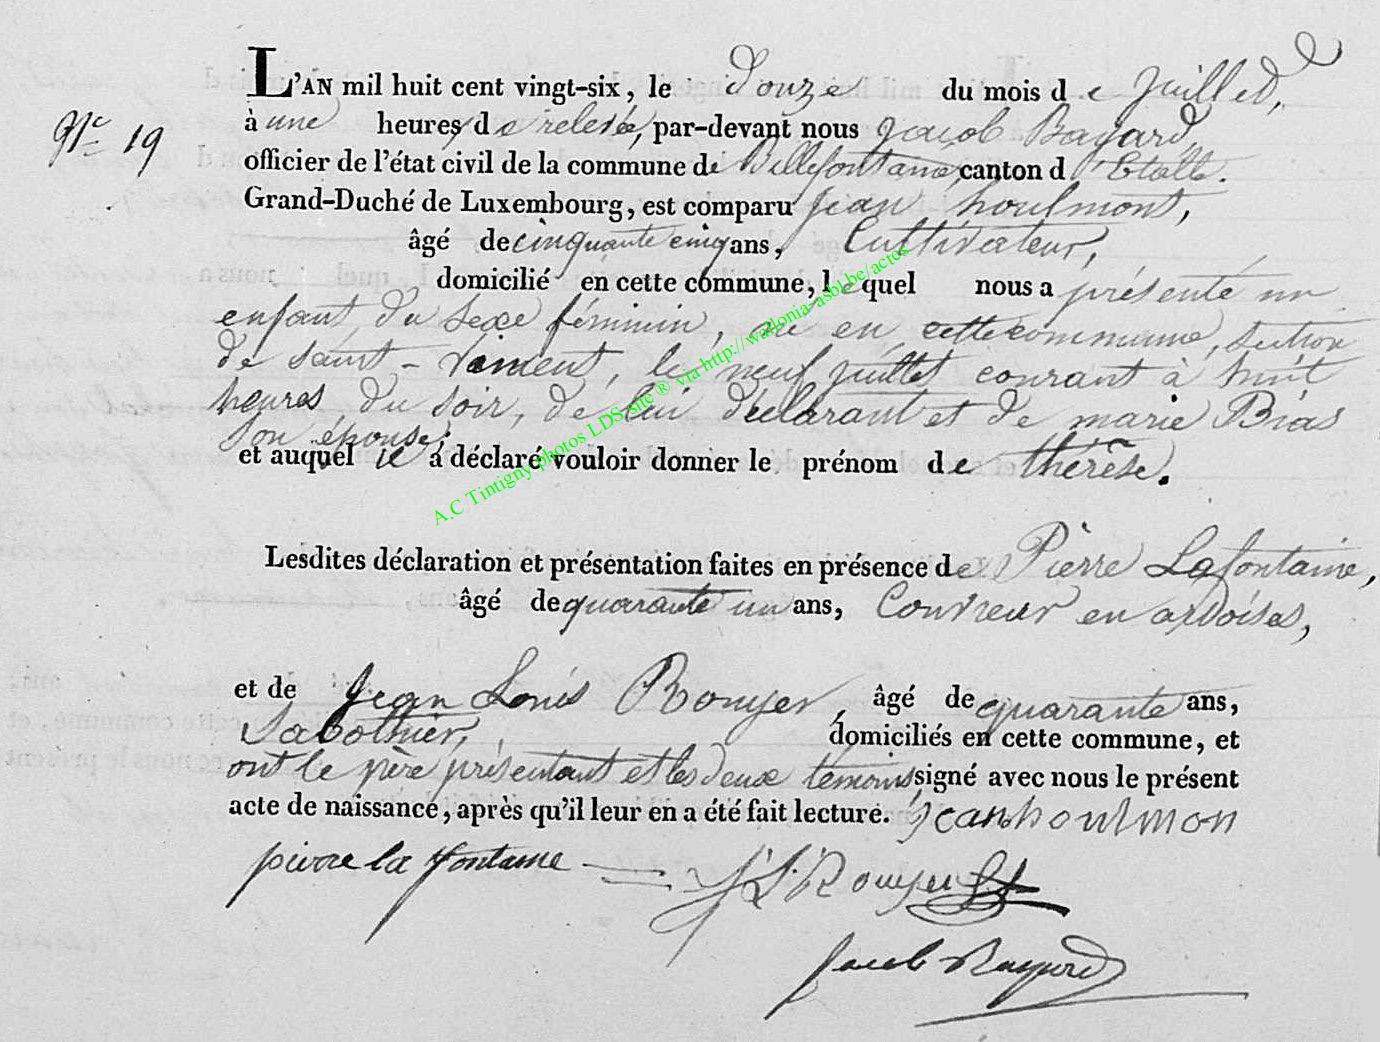 L'AN mil huit cent vingt-six, le Douze du mois de Juillet,
Nº 19
à une heures de relevée, par-devant nous Jacob Bayard,
officier de l'état civil de la commune de Bellefontaine, canton d'Etalle.
Grand-Duché de Luxembourg, est comparu Jean houlmont,
âgé de cinquante cinq ans, Cultivateur,
domicilié en cette commune, lequel nous a présenté un
enfant du sexe féminin, né en cette commune, section
de saint-Vincent, le neuf juillet courant à huit
heures du soir, de lui déclarant et de marie Bias
son épouse;
et auquel il a déclaré vouloir donner le prénom de thérèse.
Lesdites déclaration et présentation faites en présence de Pierre Lafontaine,
âgé de quarante un ans, Couvreur en ardoises,
et de Jean Louis Rouyer, âgé de quarante ans,
Sabothier, domiciliés en cette commune, et
ont le père présentant et les deux témoins signé avec nous le présent
acte de naissance, après qu'il leur en a été fait lecture. jean houlmon
pierre la fontaine J L Rouyer
Jacob Bayard
A.C Tintigny photos LDS site ® via http://wallonia-asbl.be/actes